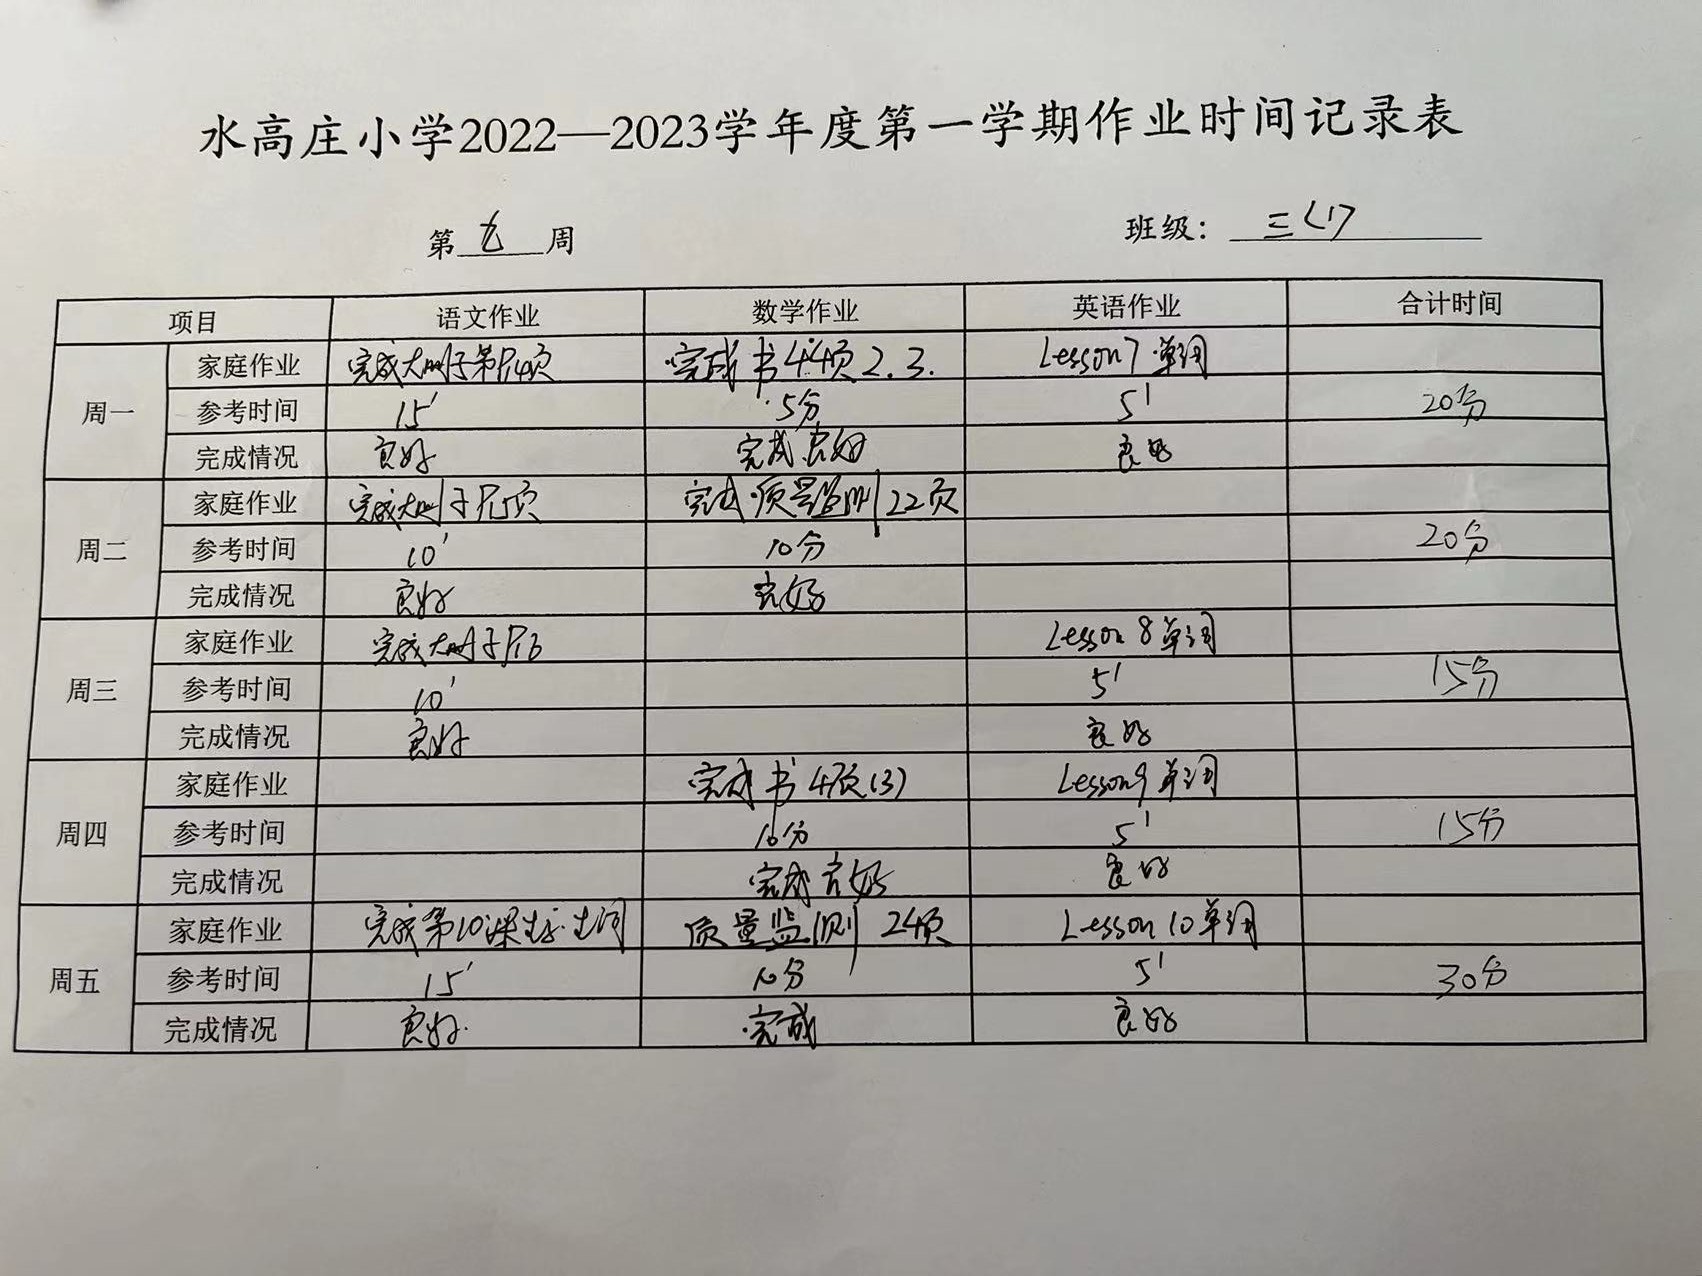 水高庄小学2022—2023学年度第一学期作业时间记录表
第九周 班级：三(1)
项目 语文作业 数学作业 英语作业 合计时间
周一 家庭作业 完成大册子第P14页 完成书44页2.3. Lesson7单词
参考时间 15' 5分 5' 20分
完成情况 良好 完成良好 良好
周二 家庭作业 完成大册子P15页 完成质量监测22页
参考时间 10' 10分 20分
完成情况 良好 良好
周三 家庭作业 完成大册子P16 Lesson 8 单词
参考时间 10' 5' 15分
完成情况 良好 良好
周四 家庭作业 完成书4页(3) Lesson9单词
参考时间 10分 5' 15分
完成情况 完成良好 良好
周五 家庭作业 完成第10课生字.生词 质量监测 24页 Lesson 10 单词
参考时间 15' 10分 5' 30分
完成情况 良好. 完成 良好